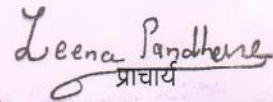 Leena Pandhare
प्राचार्य